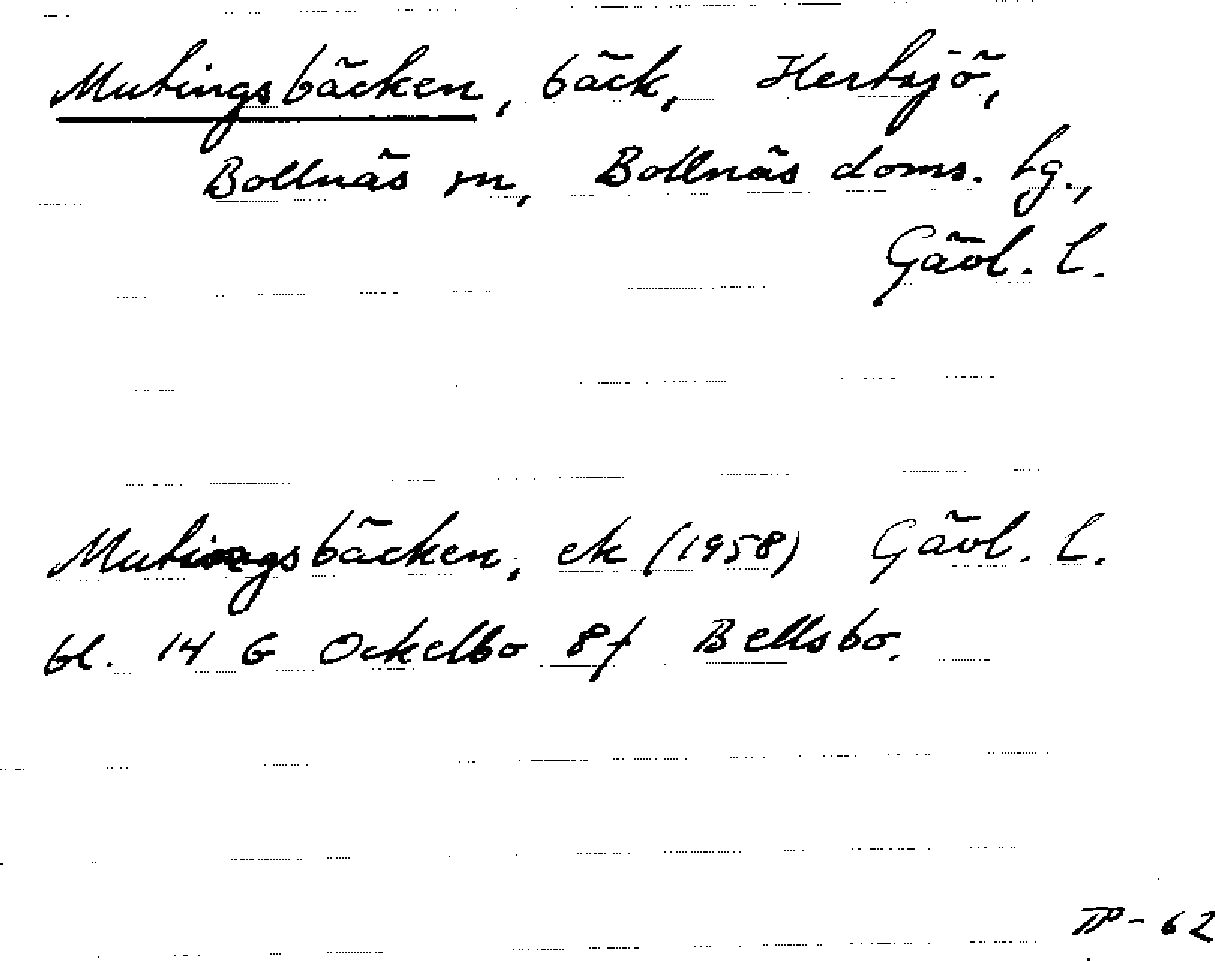 Mutingsbäcken, bäck, Hertsjö,
Bollnäs sn, Bollnäs doms. tg.,
Gävl. l.
Mutingsbäcken, ek (1958) Gävl. l.
bl. 14 G Ockelbo 8f Bellsbo.
TP-62